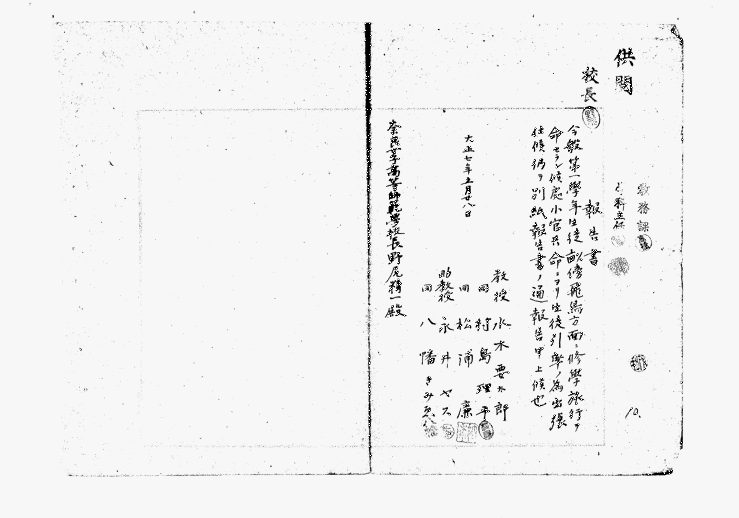 供閲
校長
教務課
報告書
今般第一學年生徒畝傍飛鳥方面ニ修學旅行ヲ
命セラレ候處小官共命ニヨリ生徒引率ノ為出張
仕候仍テ別紙報告書ノ通報告申上候也
大正七年五月廿八日
教授 水木要太郎
同 狩島理平
同 松浦廉
助教授 永井ヤス
同 八幡きみゑ
奈良女子高等師範學校長野尻精一殿
10.